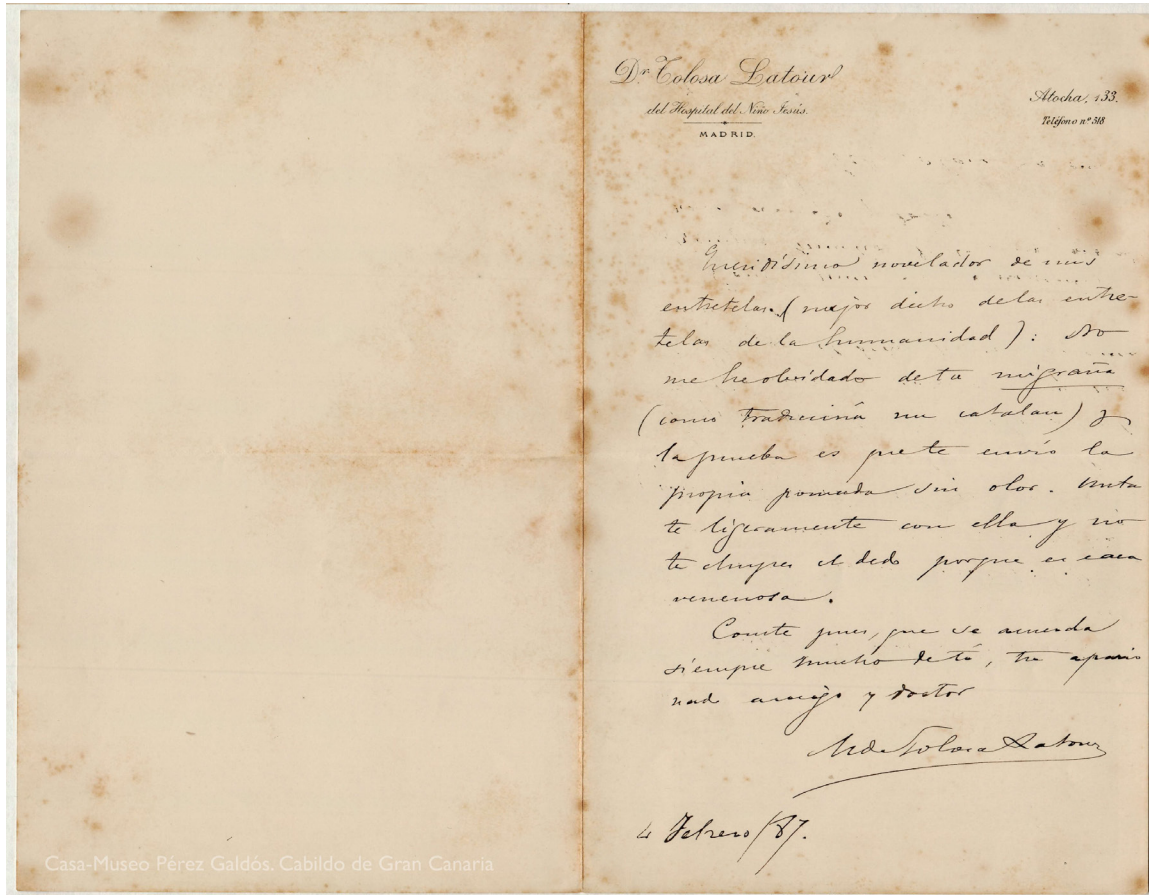 Dr. Tolosa Latour
del Hospital del Niño Jesús.
MADRID.
Atocha, 133.
Teléfono nº 518
Queridísimo novelador de mis
entretelas (mejor dicho de las entre-
telas de la humanidad): No
me he olvidado de tu migraña
(como traduciría un catalan) y
la prueba es que te envío la
propia pomada sin olor. Unta
te ligeramente con ella y no
te chupes el dedo porque es caca
venenosa.
Conste pues, que se acuerda
siempre mucho de tí, tu apasio
nad amigo y doctor
M. de Tolosa Latour
4 Febrero/87.
Casa-Museo Pérez Galdós. Cabildo de Gran Canaria